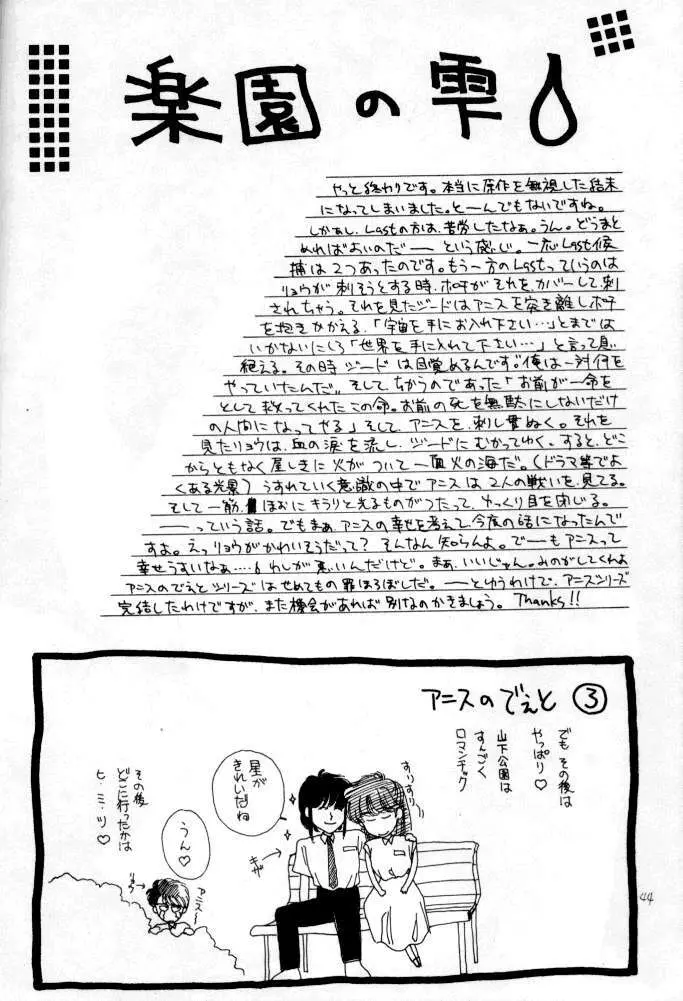 楽園の雫
やっと終わりです。本当に原作を無視した結末
になってしまいました。と一んでもないですね。
しかぁし、Lastの方は、苦労したなぁ。うん。どうまと
めればよいのだ── という感じ。一応Last候
補は2つあったのです。もう一方のLastっていうのは
リョウが刺そうとする時、ポチがそれを、カバーして、刺
されちゃう。それを見たジードはアニスを突き離しポチ
を抱きかかえる、「宇宙を手にお入れ下さい…」とまでは
いかないにしろ「世界を手に入れて下さい…」と言って息
絶える。その時ジードは目覚めるんです。"俺は一対何を
やっていたんだ〟そして、ちかうのであった「お前が一命を
として救ってくれたこの命。お前の死を無駄にしないだけ
の人間になってやる」そして、アニスを、刺し貫ぬく。それを
見たリョウは、血の涙を流し、ジードにむかってゆく。すると、どこ
からともなく屋しきに火がついて一面火の海だ。(ドラマ等でよ
くある光景) うすれていく意識の中でアニスは2人の戦いを、見てる。
そして一筋、ほおにキラリと光るものがつたって、ゆっくり目を閉じる。
──っていう話。でもまぁ、アニスの幸せを考えて今度の話になったんで
すよ。えっリョウがかわいそうだって? そんなん知らんよ。で一もアニスって
幸せうすいなぁ……わしが悪いんだけど。まぁ、いいじゃん。みのがしてくれよ
アニスのでえとシリーズはせめてもの罪ほろぼしだ。──とゆうわけで、アニスシリーズ
完結したわけですが、また機会があれば別なのかきましょう。Thanks!!
アニスのでえと ③
でも その後は
やっぱり♡
山下公園は
すんごく
ロマンチック
すりすり
星が
きれいだね
キザ
うん♡
アニスー
リョウ
その後
どこに行ったかは
ヒ・ミ・ツ♡
44